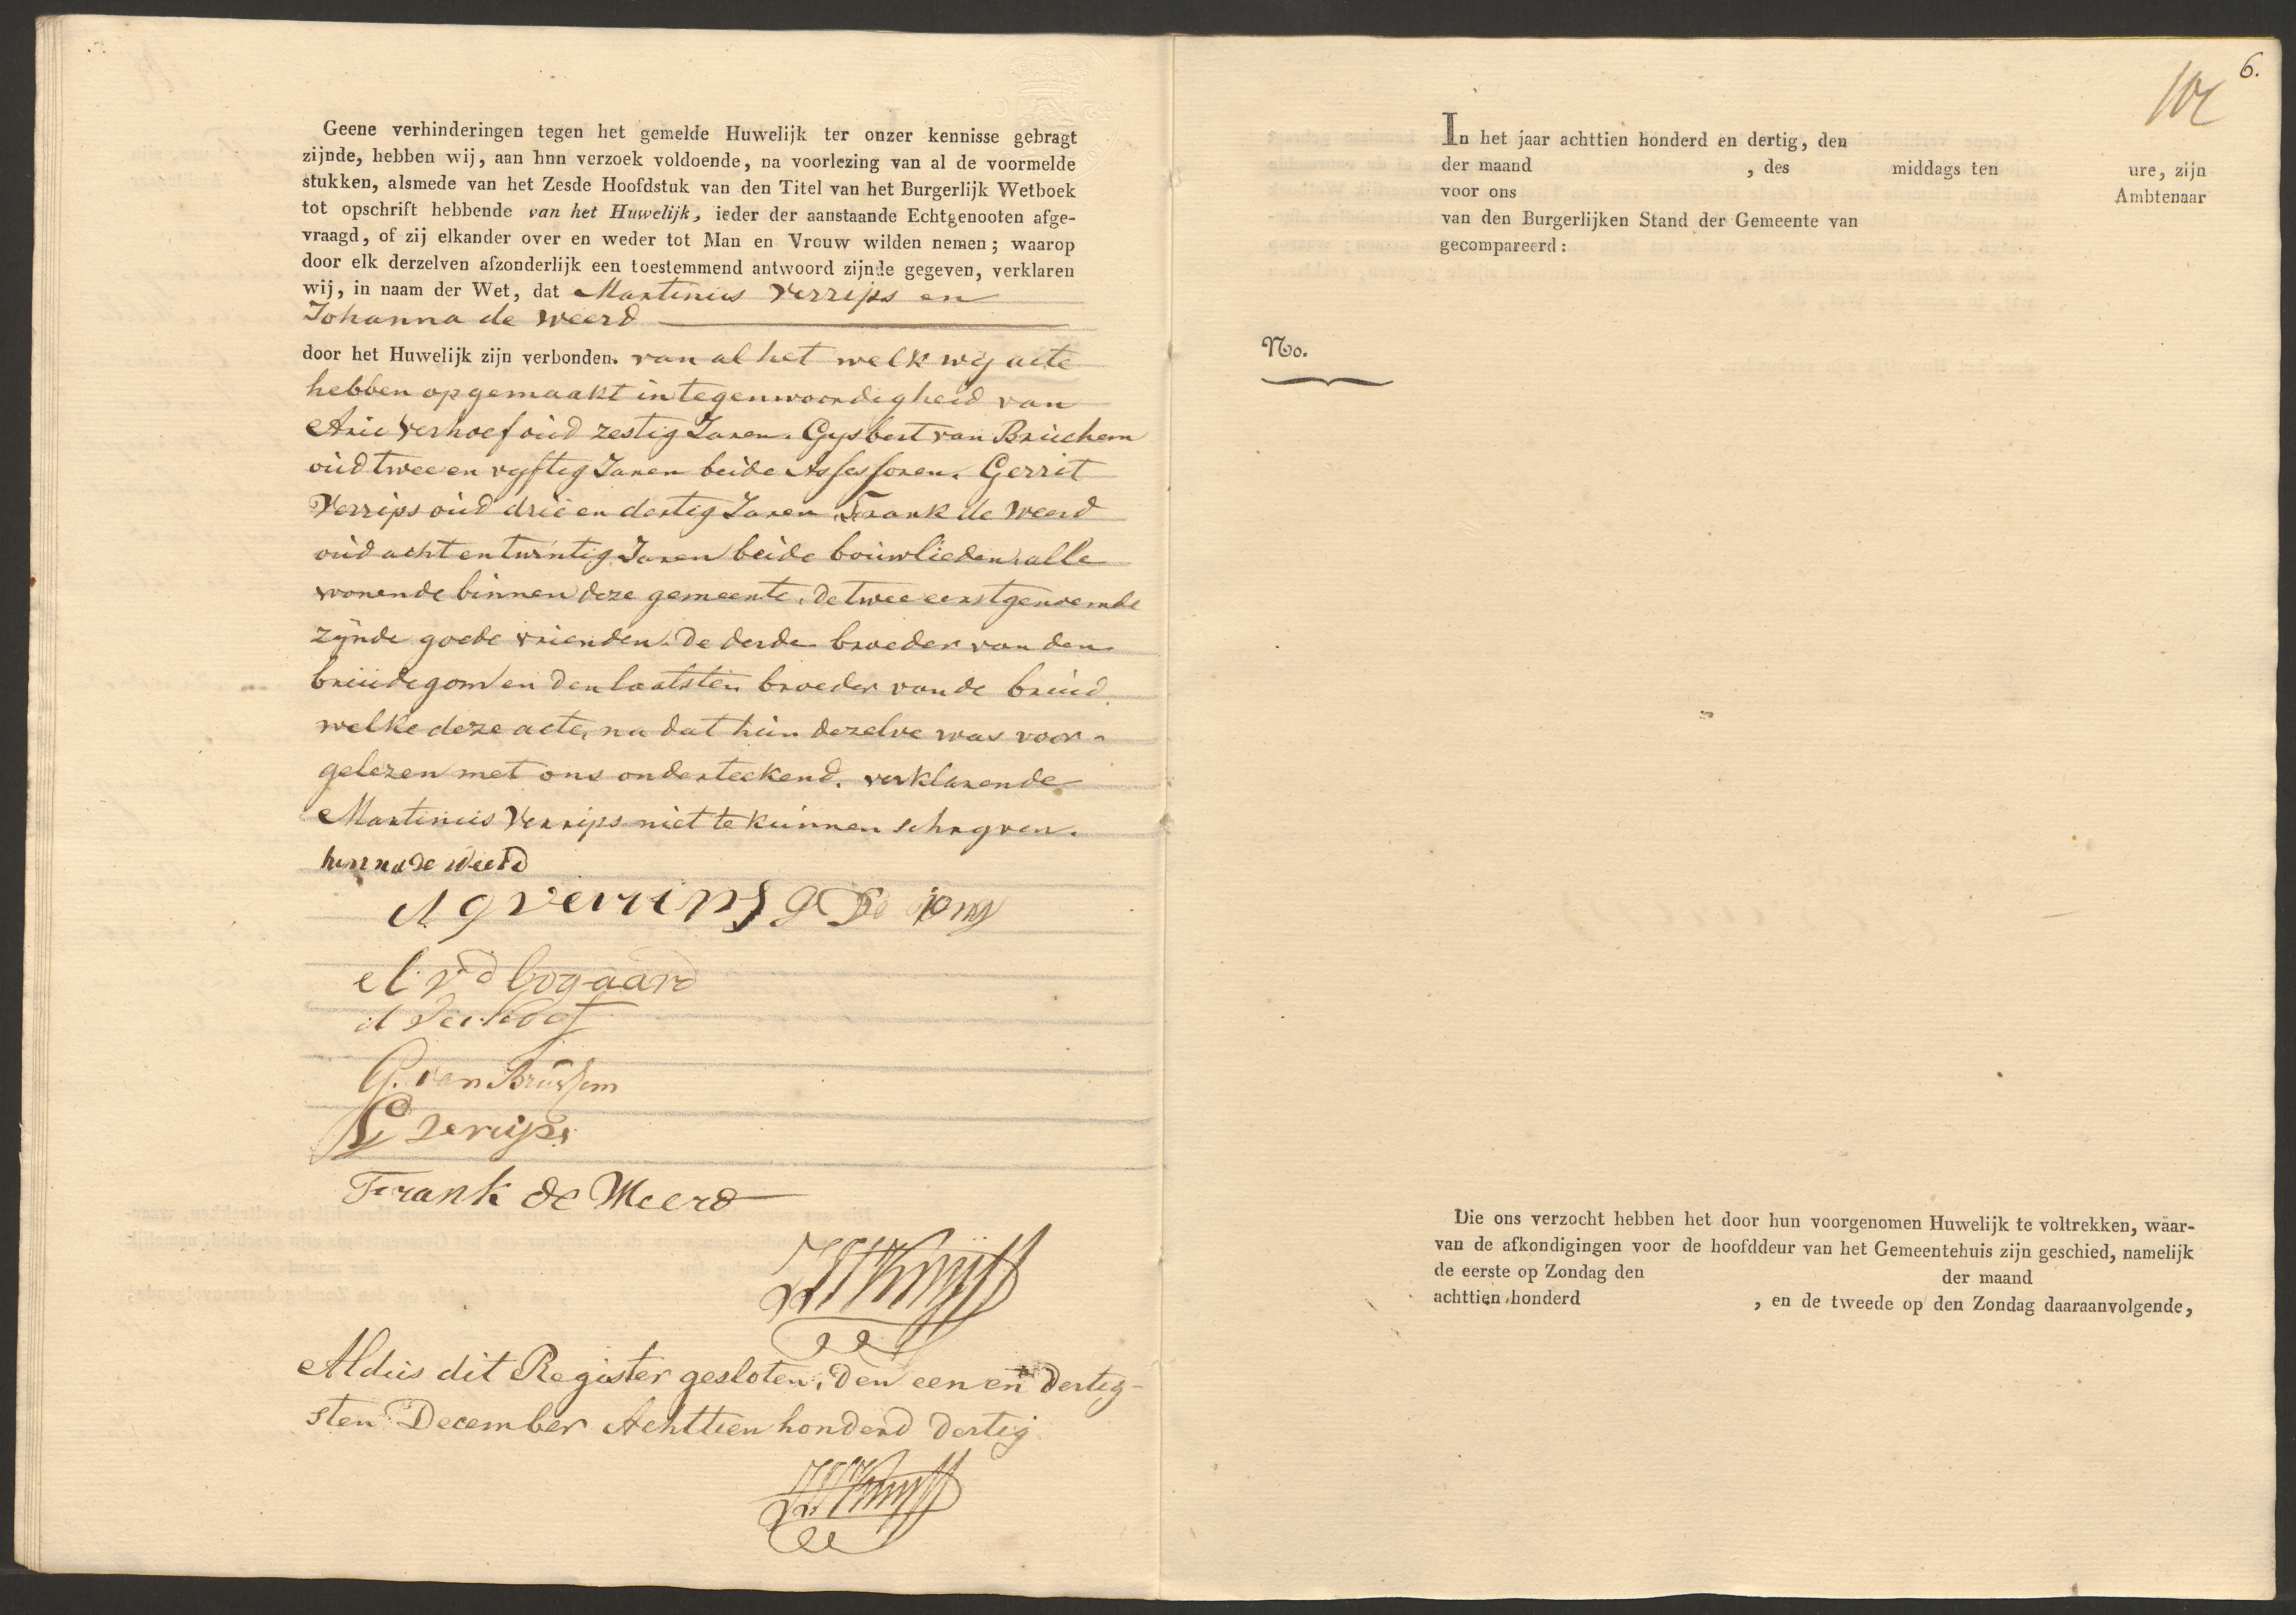 Geene verhinderingen tegen het gemelde Huwelijk ter onzer kennisse gebragt
zijnde, hebben wij, aan hnn verzoek voldoende, na voorlezing van al de voormelde
stukken, alsmede van het Zesde Hoofdstuk van den Titel van het Burgerlijk Wetboek
tot opschrift hebbende van het Huwelijk, ieder der aanstaande Echtgenooten afge-
vraagd, of zij elkander over en weder tot Man en Vrouw wilden nemen; waarop
door elk derzelven afzonderlijk een toestemmend antwoord zijnde gegeven, verklaren
wij, in naam der Wet, dat Martinus Verrips en
Johanna de Weerd
door het Huwelijk zijn verbonden. van al het welk wij acte
hebben opgemaakt in tegenwoordigheid van
Arie Verhoef oud zestig Jaren. Gysbert van Bruchem
oud twee en vyftig Jaren beide Assessoren. Gerrit
Verrips oud drie en dertig Jaren Frank de Weerd
oud acht en twintig Jaren beide bouwlieden alle
wonende binnen deze gemeente. de twee eerstgenoemde
zijnde goede vrienden. de derde broeder van den
bruidegom en den laatsten broeder van de bruid
welke deze acte, na dat hun dezelve was voor-
gelezen met ons onderteekend. verklarende
Martinus Verrips niet te kunnen schryven.
hanna de Weerd
A g verrips G De jong
A V d bogaard
A Verhoef
G. van Bruchem
G Verrips
Frank de Weerd
Aldus dit Register gesloten, den een en dertig-
sten December Achttien honderd dertig
6.
In het jaar achttien honderd en dertig, den
der maand , des middags ten ure, zijn
voor ons Ambtenaar
van den Burgerlijken Stand der Gemeente van
gecompareerd:
No.
Die ons verzocht hebben het door hun voorgenomen Huwelijk te voltrekken, waar-
van de afkondigingen voor de hoofddeur van het Gemeentehuis zijn geschied, namelijk
de eerste op Zondag den der maand
achttien honderd , en de tweede op den Zondag daaraanvolgende,